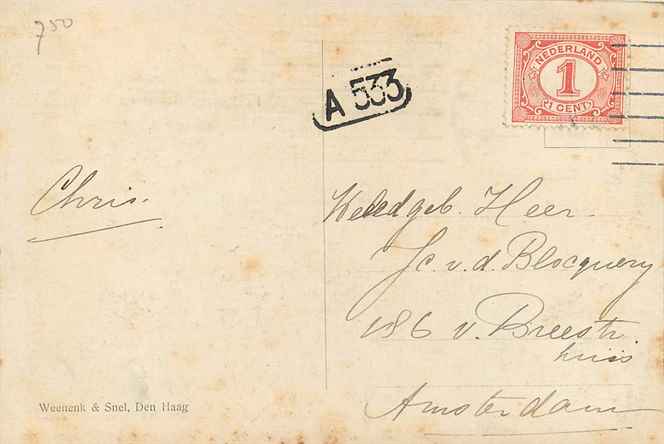 750
A 533
NEDERLAND
1
1 CENT
Chris.
WelEdgeb. Heer
Jc. v. d. Blocquery
186 v. Breestr.
huis
Amsterdam
Weenenk & Snel, Den Haag